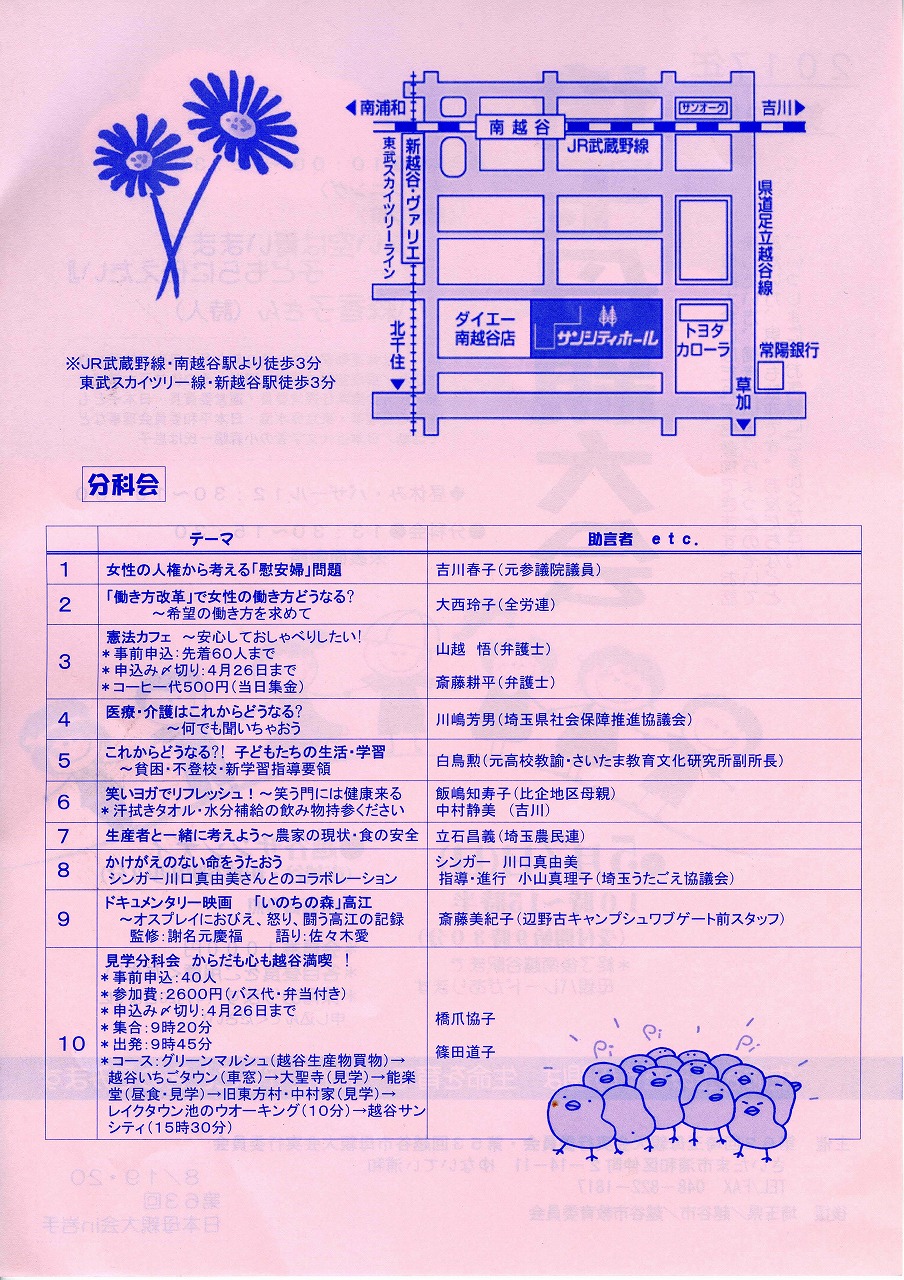 ◀南浦和
サンオーク
吉川▶
南越谷
JR武蔵野線
東武スカイツリーライン
新越谷・ヴァリエ
県道足立越谷線
ダイエー
南越谷店
サンシティホール
トヨタ
カローラ
常陽銀行
北千住
▼
草加
▼
※JR武蔵野線・南越谷駅より徒歩3分
東武スカイツリー線・新越谷駅徒歩3分
分科会
テーマ 助言者 etc.
1 女性の人権から考える「慰安婦」問題 吉川春子(元参議院議員)
2 「働き方改革」で女性の働き方どうなる?
～希望の働き方を求めて
大西玲子(全労連)
3 憲法カフェ ～安心しておしゃべりしたい!
*事前申込:先着60人まで
*申込み〆切り:4月26日まで
*コーヒー代500円(当日集金)
山越 悟(弁護士)
斎藤耕平(弁護士)
4 医療・介護はこれからどうなる?
～何でも聞いちゃおう
川嶋芳男(埼玉県社会保障推進協議会)
5 これからどうなる?! 子どもたちの生活・学習
～貧困・不登校・新学習指導要領
白鳥勲(元高校教諭・さいたま教育文化研究所副所長)
6 笑いヨガでリフレッシュ!～笑う門には健康来る
*汗拭きタオル・水分補給の飲み物持参ください
飯嶋知寿子(比企地区母親)
中村静美 (吉川)
7 生産者と一緒に考えよう～農家の現状・食の安全 立石昌義(埼玉農民連)
8 かけがえのない命をうたおう
シンガー川口真由美さんとのコラボレーション
シンガー 川口真由美
指導・進行 小山真理子(埼玉うたごえ協議会)
9 ドキュメンタリー映画 「いのちの森」高江
～オスプレイにおびえ、怒り、闘う高江の記録
監修:謝名元慶福 語り:佐々木愛
斎藤美紀子(辺野古キャンプシュワブゲート前スタッフ)
10 見学分科会 からだも心も越谷満喫 !
*事前申込:40人
*参加費:2600円(バス代・弁当付き)
*申込み〆切り:4月26日まで
*集合:9時20分
*出発:9時45分
*コース:グリーンマルシュ(越谷生産物買物)→
越谷いちごタウン(車窓)→大聖寺(見学)→能楽
堂(昼食・見学)→旧東方村・中村家(見学)→
レイクタウン池のウオーキング(10分)→越谷サン
シティ(15時30分)
橋爪協子
篠田道子
Pi
Pi
Pi